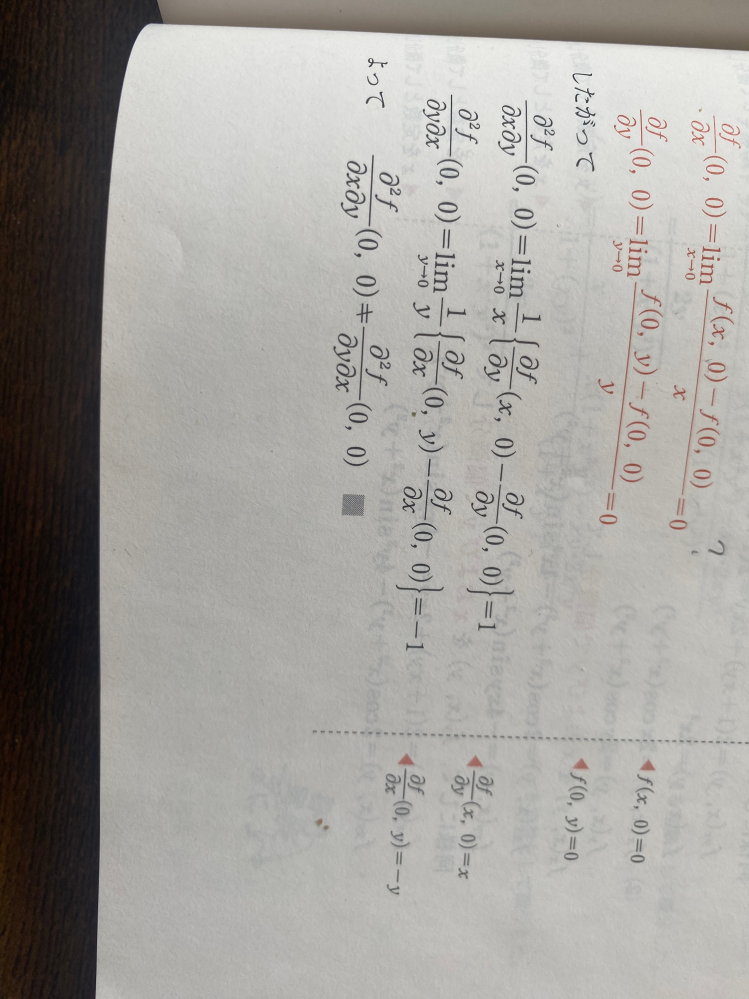 ∂f/∂x(0, 0)=lim_{x→0} (f(x, 0)−f(0, 0))/x=0
◀f(x, 0)=0
∂f/∂y(0, 0)=lim_{y→0} (f(0, y)−f(0, 0))/y=0
◀f(0, y)=0
したがって
∂²f/∂x∂y(0, 0)=lim_{x→0} 1/x{∂f/∂y(x, 0)−∂f/∂y(0, 0)}=1
◀∂f/∂y(x, 0)=x
∂²f/∂y∂x(0, 0)=lim_{y→0} 1/y{∂f/∂x(0, y)−∂f/∂x(0, 0)}=−1
◀∂f/∂x(0, y)=−y
よって ∂²f/∂x∂y(0, 0)≠∂²f/∂y∂x(0, 0) ■